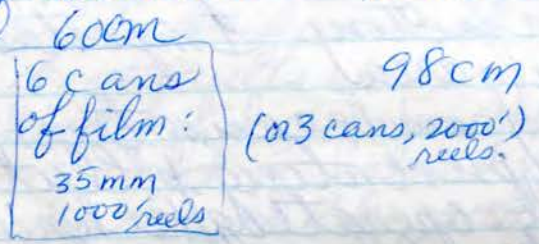 60cm
6 cans
of film:
35mm
1000' reels
98cm
(or 3 cans, 2000')
reels.